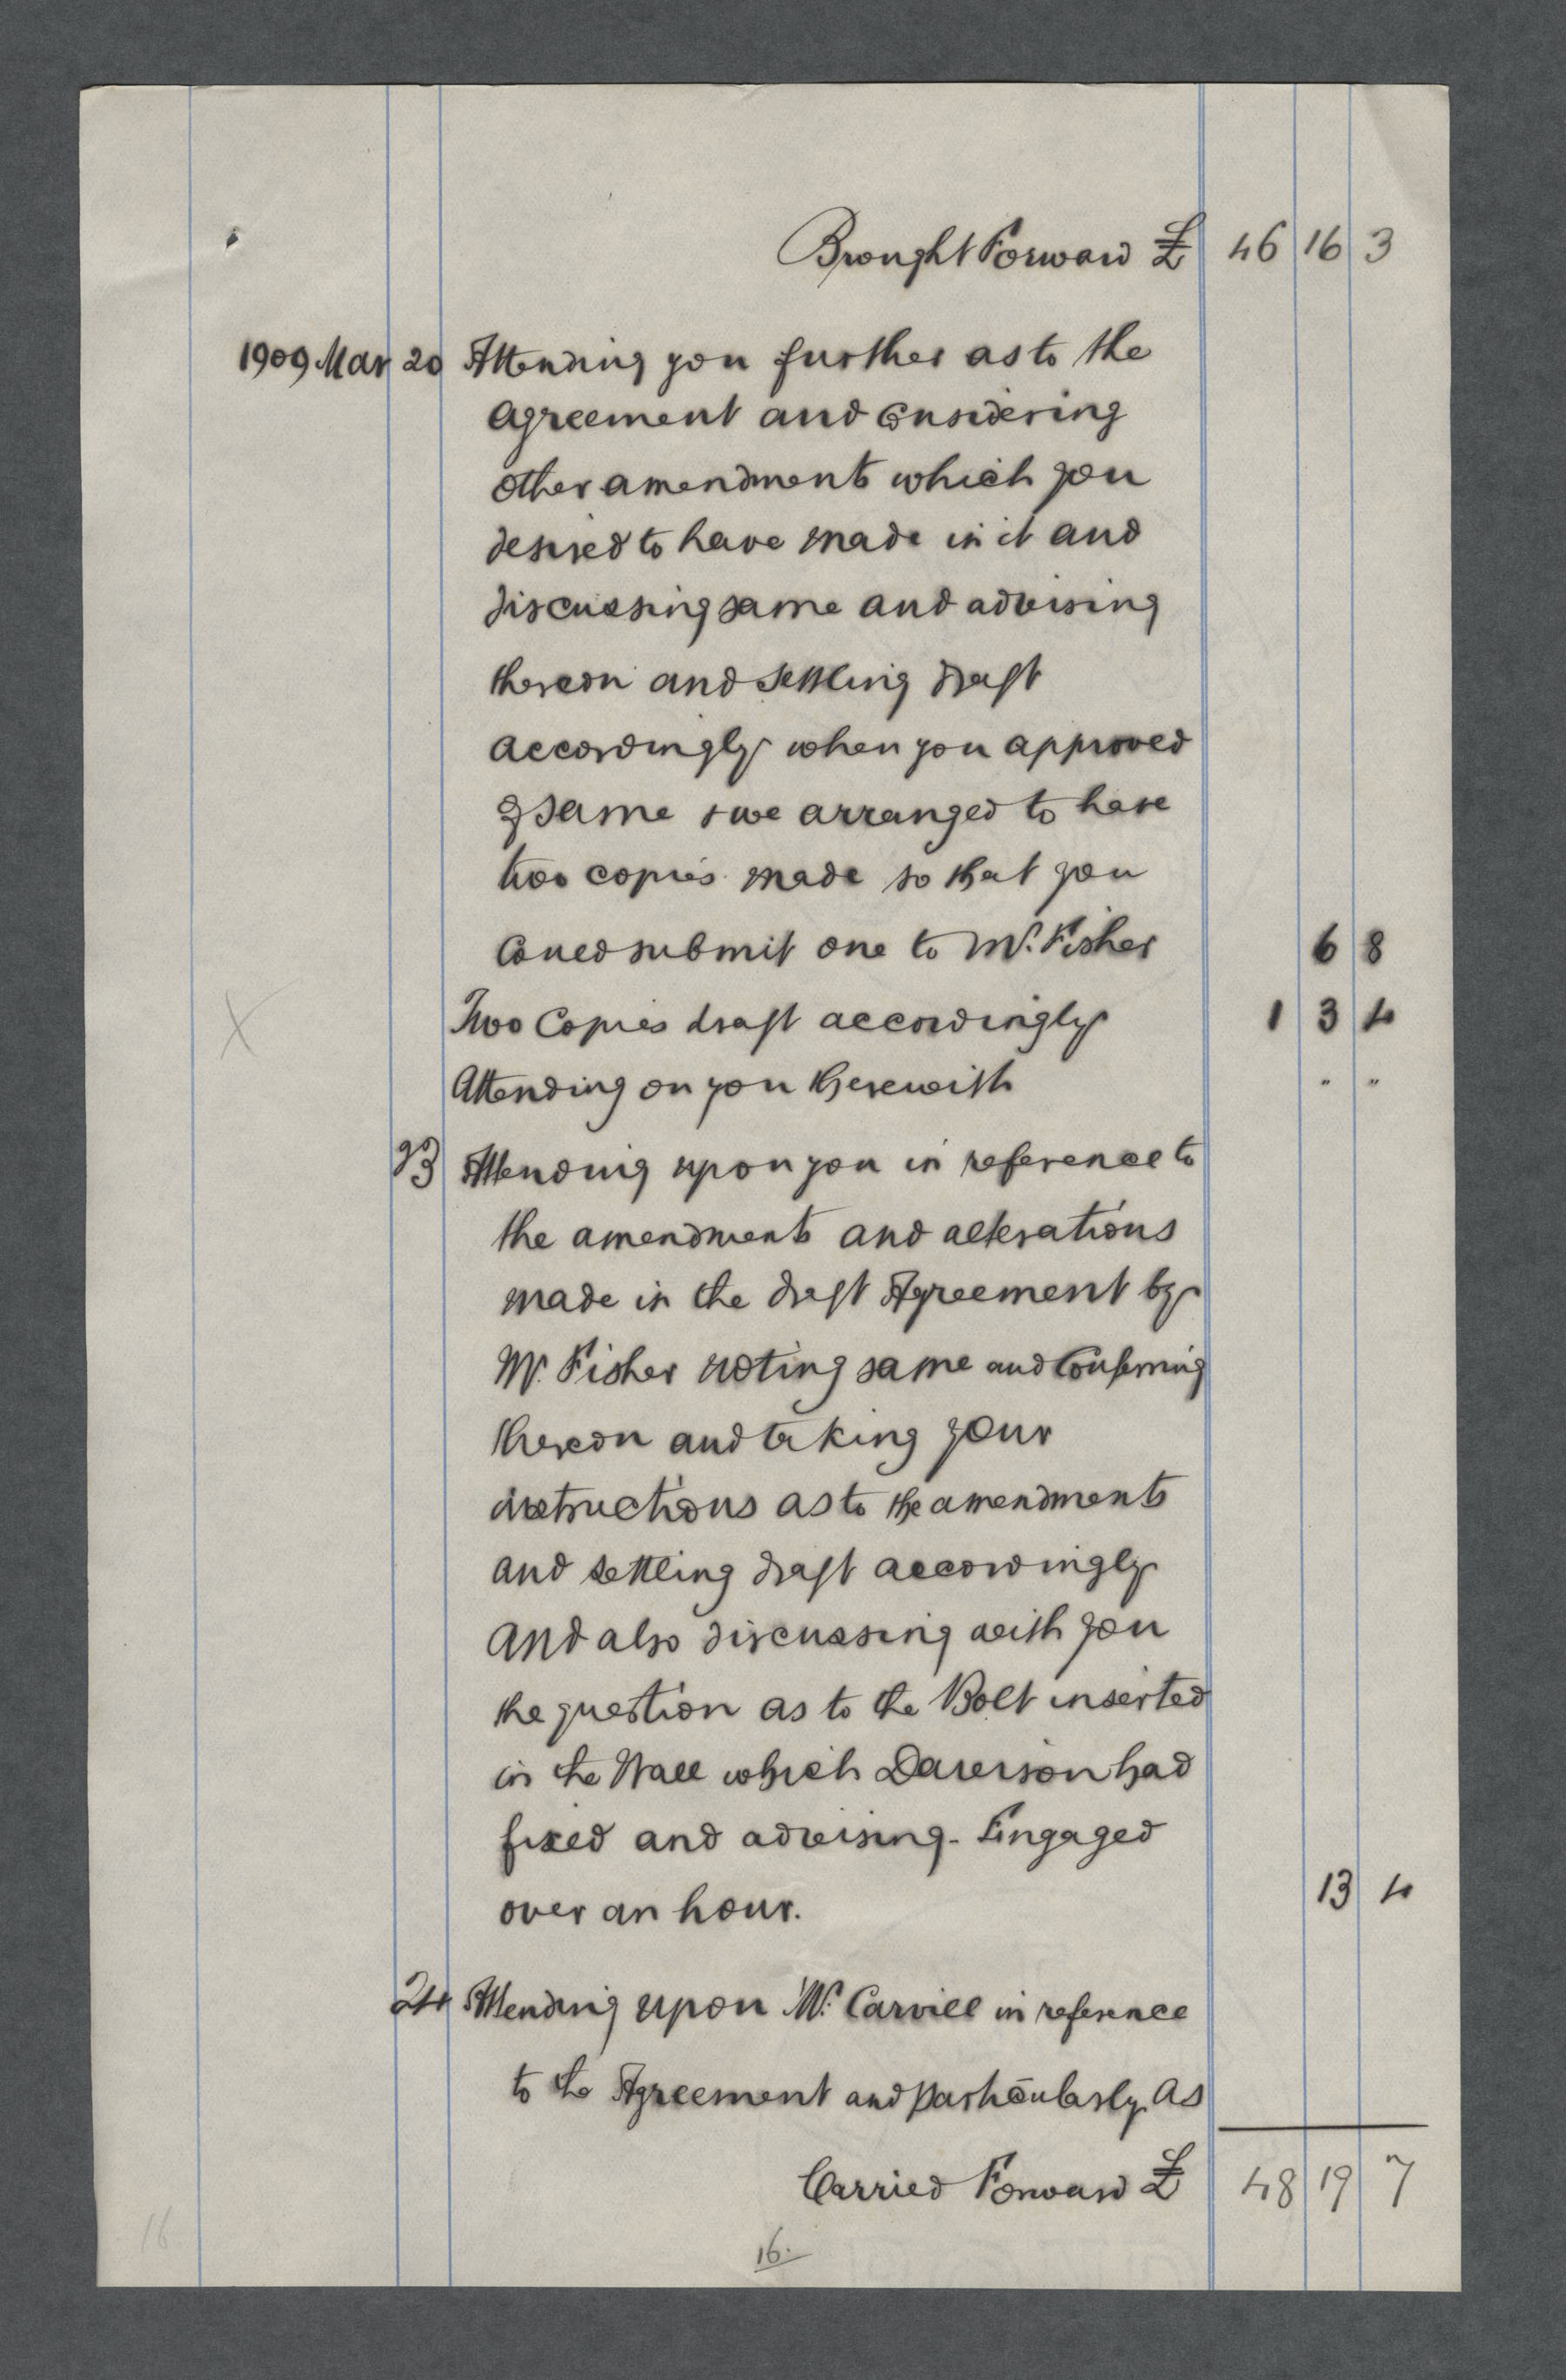 Brought Forward £ 46 16 3
1909 Mar 20 Attending you further as to the
agreement and considering
other amendments which you
desired to have made in it and
discussing same and advising
thereon and settling draft
accordingly when you approved
of same & we arranged to have
two copies made so that you
could submit one to Mr. Fisher 6 8
X Two Copies draft accordingly 1 3 4
Attending on you therewith " "
23 Attending upon you in reference to
the amendments and alterations
made in the draft Agreement by
Mr. Fisher noting same and Conferring
thereon and taking your
instructions as to the amendments
and settling draft accordingly
and also discussing with you
the question as to the Bolt inserted
in the Wall which Davison had
fixed and advising - Engaged
over an hour. 13 4
24 Attending upon Mr. Carvill in reference
to the Agreement and particularly as
Carried Forward £ 48 19 7
16.
16